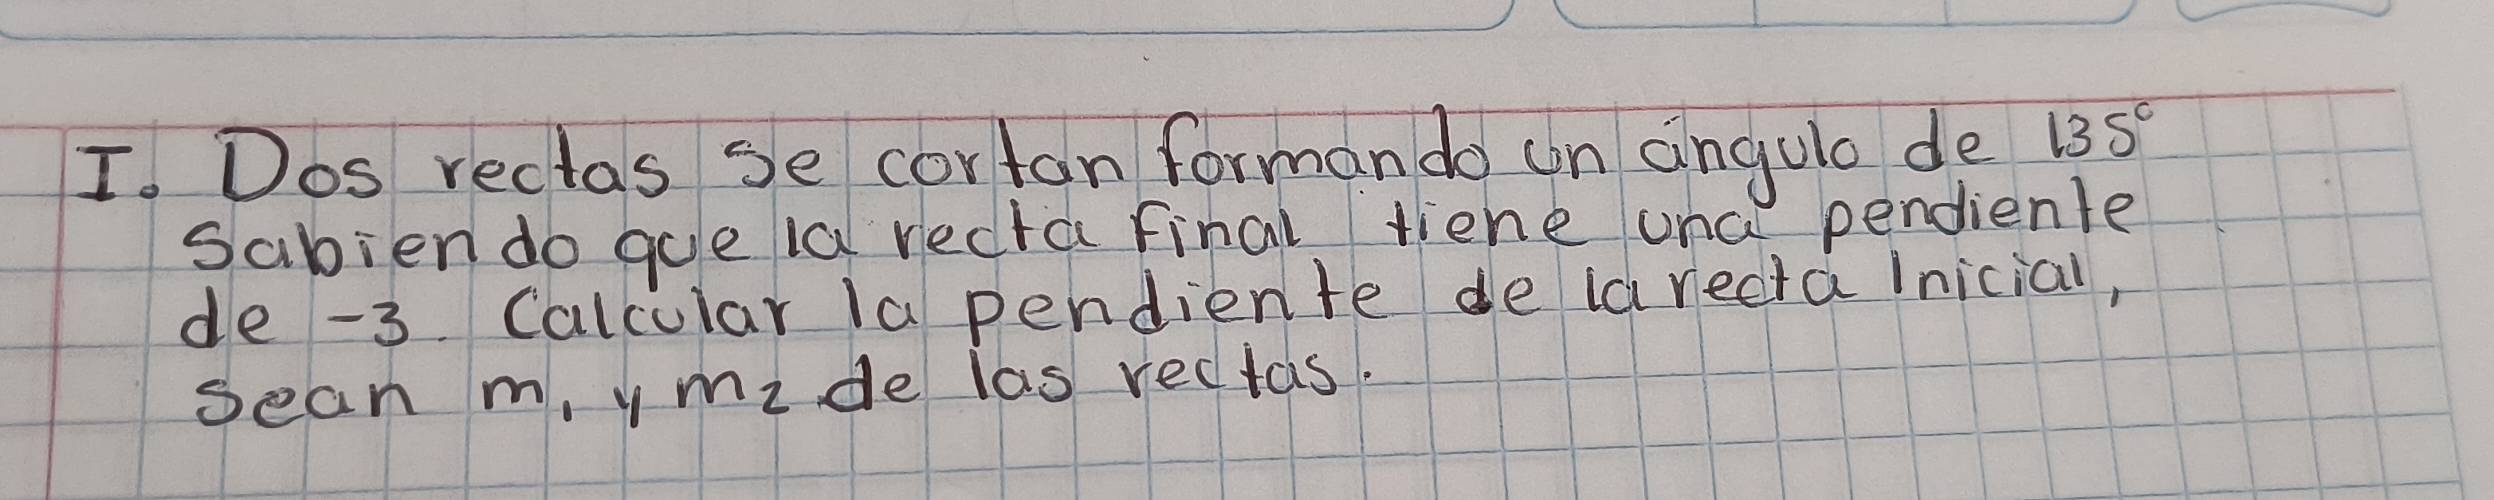 I. Dos rectas se cortan formando un ángulo de 135°
sabiendo que la recta final tiene una pendiente
de -3. Calcular la pendiente de la recta Inicial,
sean m₁ y m₂ de las rectas.